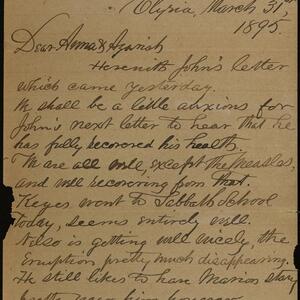 Olysia, March 31st
1895.
Dear Anna & Azariah
Herewith John's letter
which came yesterday.
We shall be a little anxious for
John's next letter to hear that he
has fully recovered his health.
We are all well except the Measles,
and well recovering from that.
Keyes went to Sabbath School
today, seems entirely well.
Nelso is getting well nicely, the
eruption pretty much disappearing.
He still likes to have Marion stay
pretty near him however